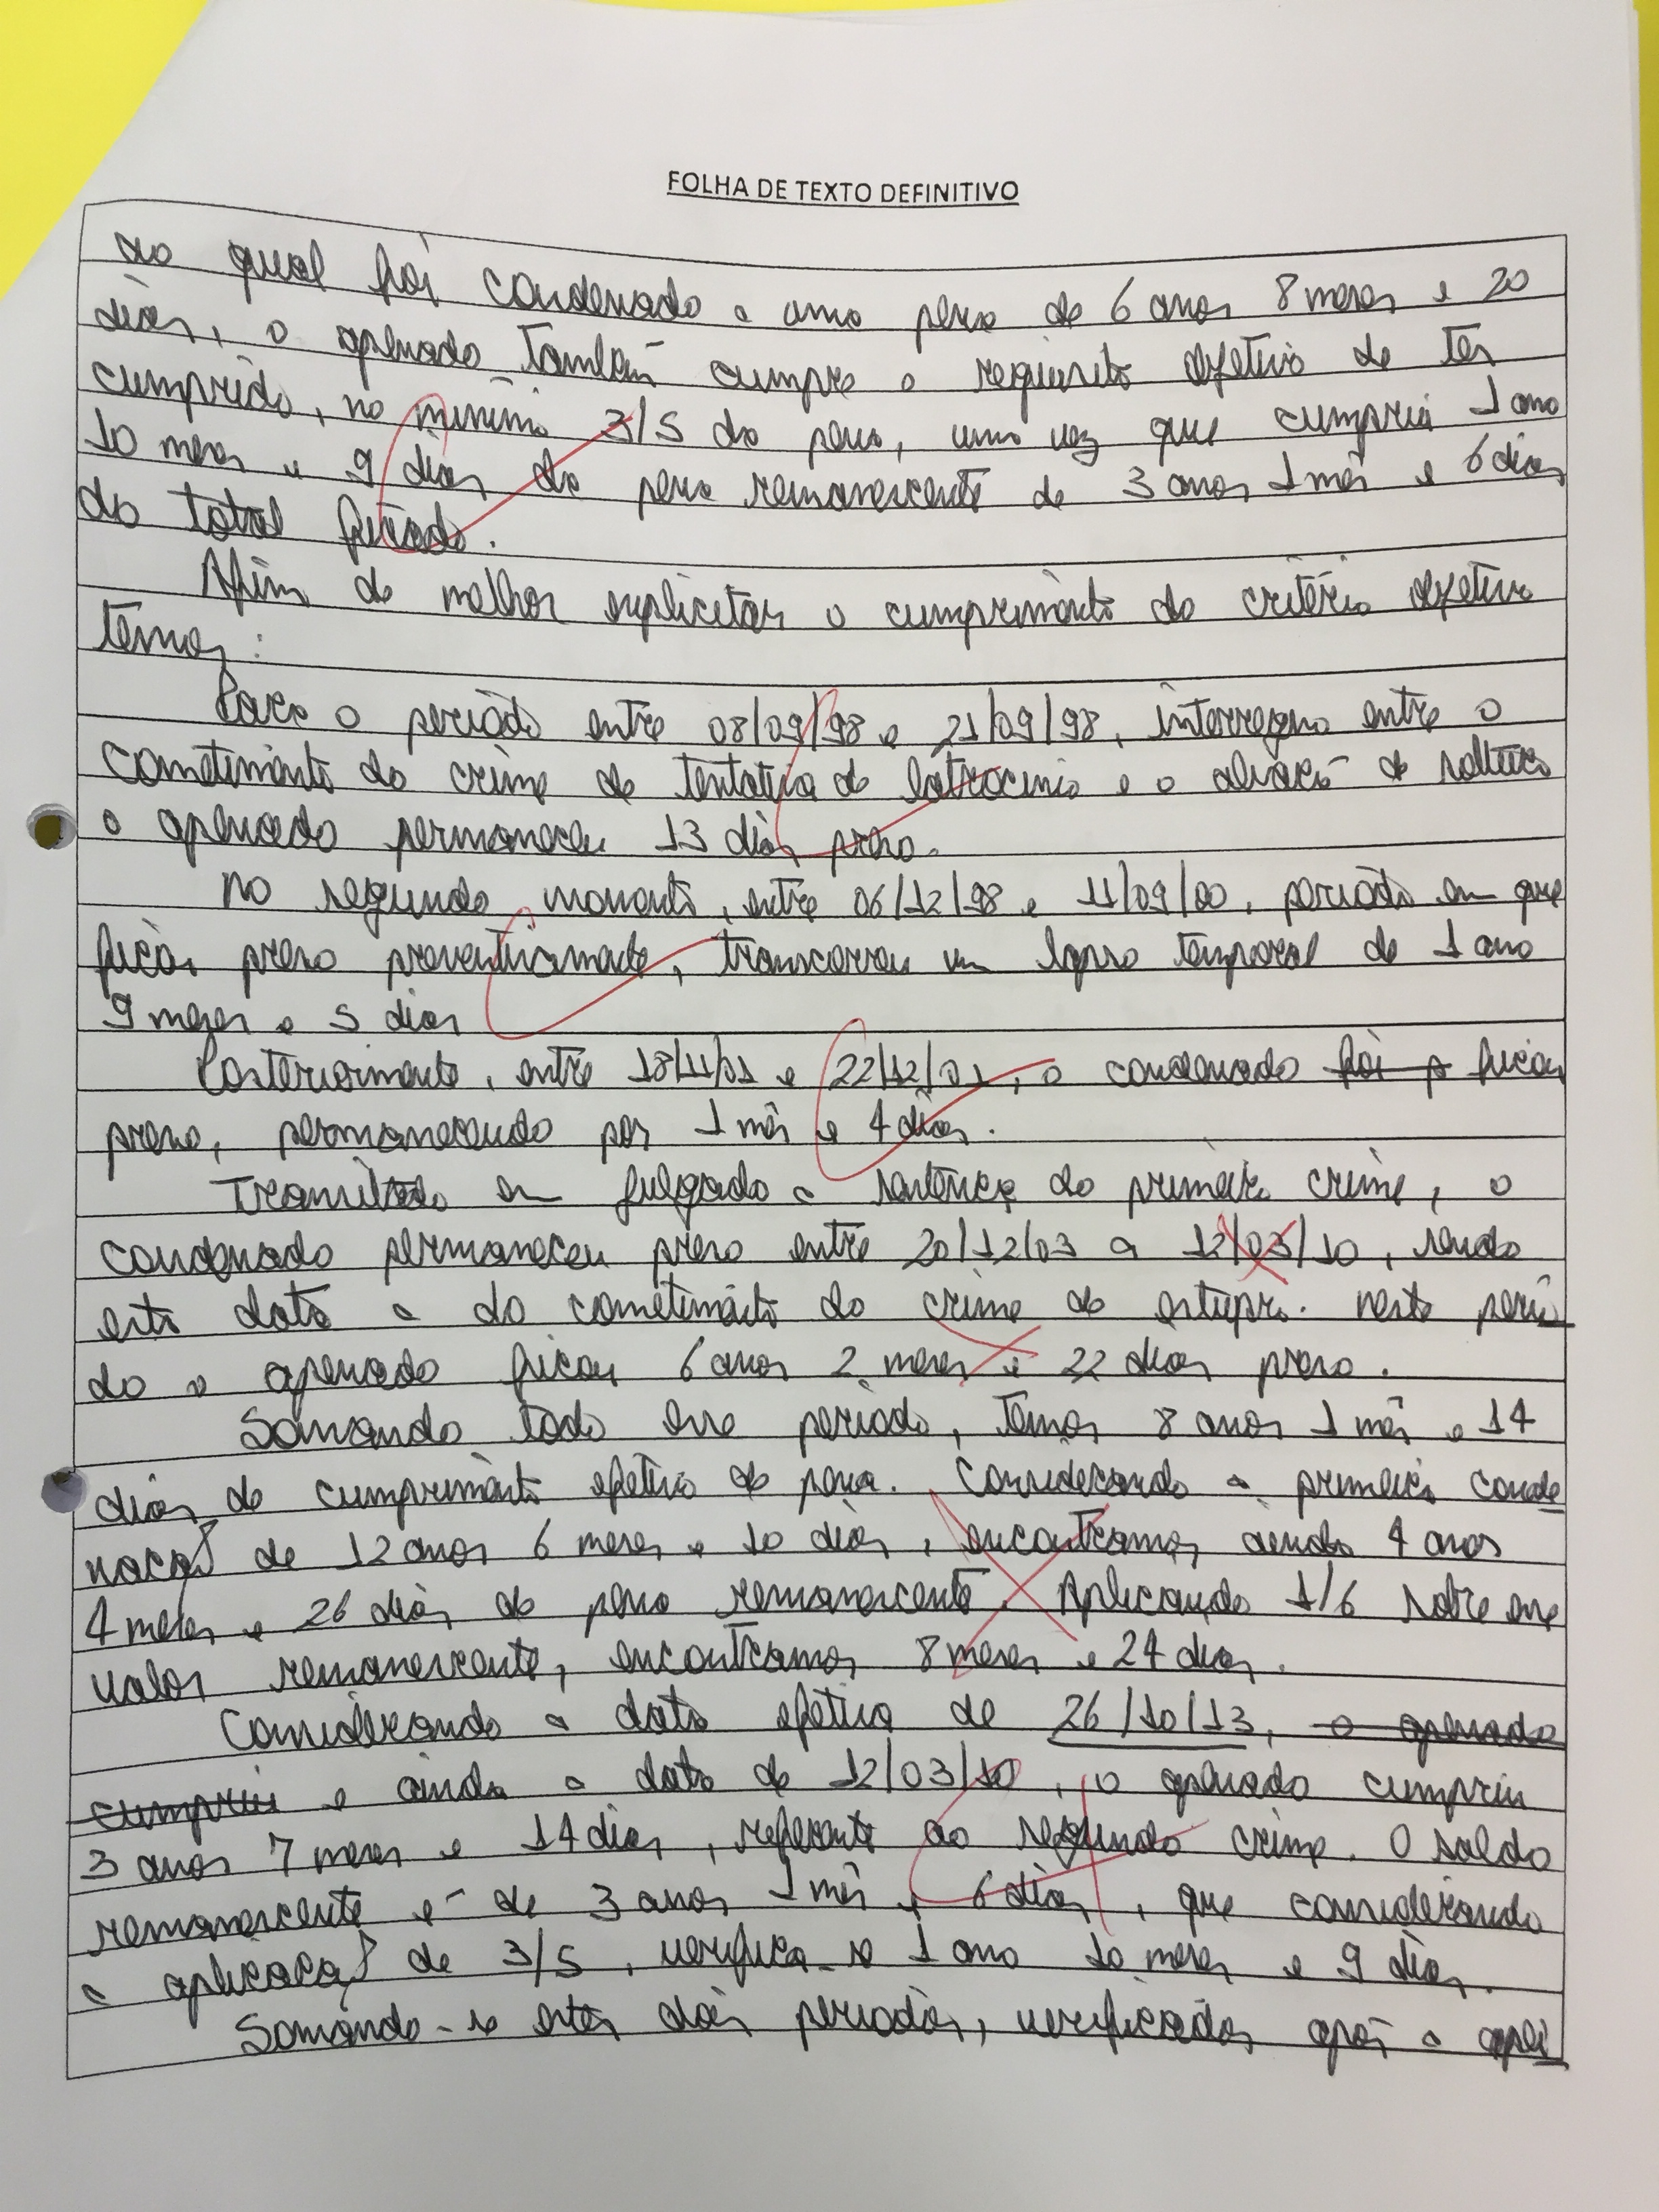 FOLHA DE TEXTO DEFINITIVO
ao qual foi condenado a uma pena de 6 anos 8 meses e 20
dias, o apenado também cumpre o requisito objetivo de ter
cumprido, no mínimo 3/5 da pena, uma vez que cumpriu 1 ano
10 meses e 9 dias da pena remanescente de 3 anos 1 mês e 6 dias
do total fixado.
Afim de melhor explicitar o cumprimento do critério objetivo
temos:
Para o período entre 08/09/98 e 21/09/98, interregno entre o
cometimento do crime de tentativa de latrocínio e o alvará de soltura
o apenado permaneceu 13 dias preso.
No segundo momento, entre 06/12/98 e 11/09/00, período em que
ficou preso preventivamente, transcorreu um lapso temporal de 1 ano
9 meses e 5 dias
Posteriormente, entre 18/11/01 e 22/12/01, o condenado foi p ficou
preso, permanecendo por 1 mês e 4 dias.
Transitado em julgado a sentença do primeiro crime, o
condenado permaneceu preso entre 20/12/03 a 12/03/10, sendo
esta data a do cometimento do crime de estupro. Neste perío
do o apenado ficou 6 anos 2 meses e 22 dias preso.
Somando todo esse período, temos 8 anos 1 mês e 14
dias de cumprimento efetivo de pena. Considerando a primeira conde
nação de 12 anos 6 meses e 10 dias, encontramos ainda 4 anos
4 meses e 26 dias de pena remanescente. Aplicando 1/6 sobre esse
valor remanescente, encontramos 8 meses e 24 dias.
Considerando a data efetiva de 26/10/13, o apenado
cumpriu e ainda a data de 12/03/10, o apenado cumpriu
3 anos 7 meses e 14 dias, referente ao segundo crime. O saldo
remanescente é de 3 anos 1 mês e 6 dias, que considerando
a aplicação de 3/5, verifica-se 1 ano 10 meses e 9 dias.
Somando-se estes dois períodos, verificados após a apli